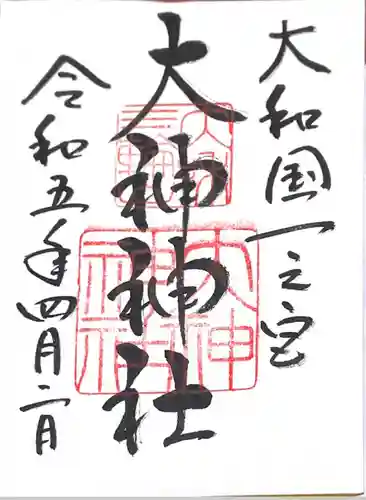 大和国一之宮
大神神社
令和五年四月二日
大神
神社